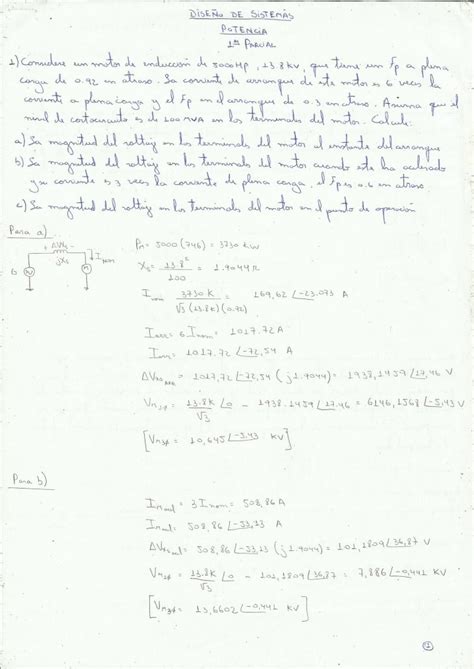 DISEÑO DE SISTEMAS
POTENCIA
1er PARCIAL
1) Considere un motor de inducción de 5000 Hp, 13.8 kV, que tiene un fp a plena
carga de 0.92 en atraso. La corriente de arranque de este motor es 6 veces la
corriente a plena carga y el fp en el arranque es de 0.3 en atraso. Asuma que el
nivel de cortocircuito es de 100 MVA en los terminales del motor. Calcule:
a) La magnitud del voltaje en los terminales del motor al instante del arranque
b) La magnitud del voltaje en los terminales del motor cuando este ha acelerado
y su corriente es 3 veces la corriente de plena carga, el fp es 0.6 en atraso
c) La magnitud del voltaje en los terminales del motor en el punto de operación
Para a)
+ ΔVXs -
jXs
Inom
G
M
Pn = 5000 (746) = 3730 kW
Xs = 13.8² / 100 = 1.9044 Ω
Inom = 3730 K / √3 (13.8K)(0.92) = 169,62 ∠-23.073 A
Iarr = 6 Inom = 1017.72 A
Iarr = 1017.72 ∠-72,54 A
ΔVXs arr = 1017,72 ∠-72,54 (j1.9044) = 1938,1459 ∠17,46 V
Vm1ø = 13.8K / √3 ∠0 - 1938.1459 ∠17.46 = 6146,1568 ∠-5,43 V
[Vm3ø = 10,645 ∠-5,43 kV]
Para b)
= 3 Inom = 508,86 A
= 508,86 ∠-53,13 A
= 508,86 ∠-53,13 (j1.9044) = 101,1809 ∠36,87 V
Vm1ø = 13.8K / √3 ∠0 - 101,1809 ∠36,87 = 7,886 ∠-0,441 kV
[Vm3ø = 13,6602 ∠-0,441 kV]
1